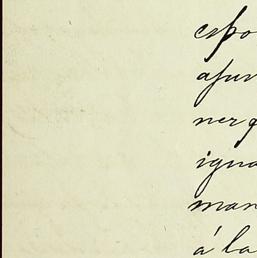 espo
afun
ner q
igua
man
á la